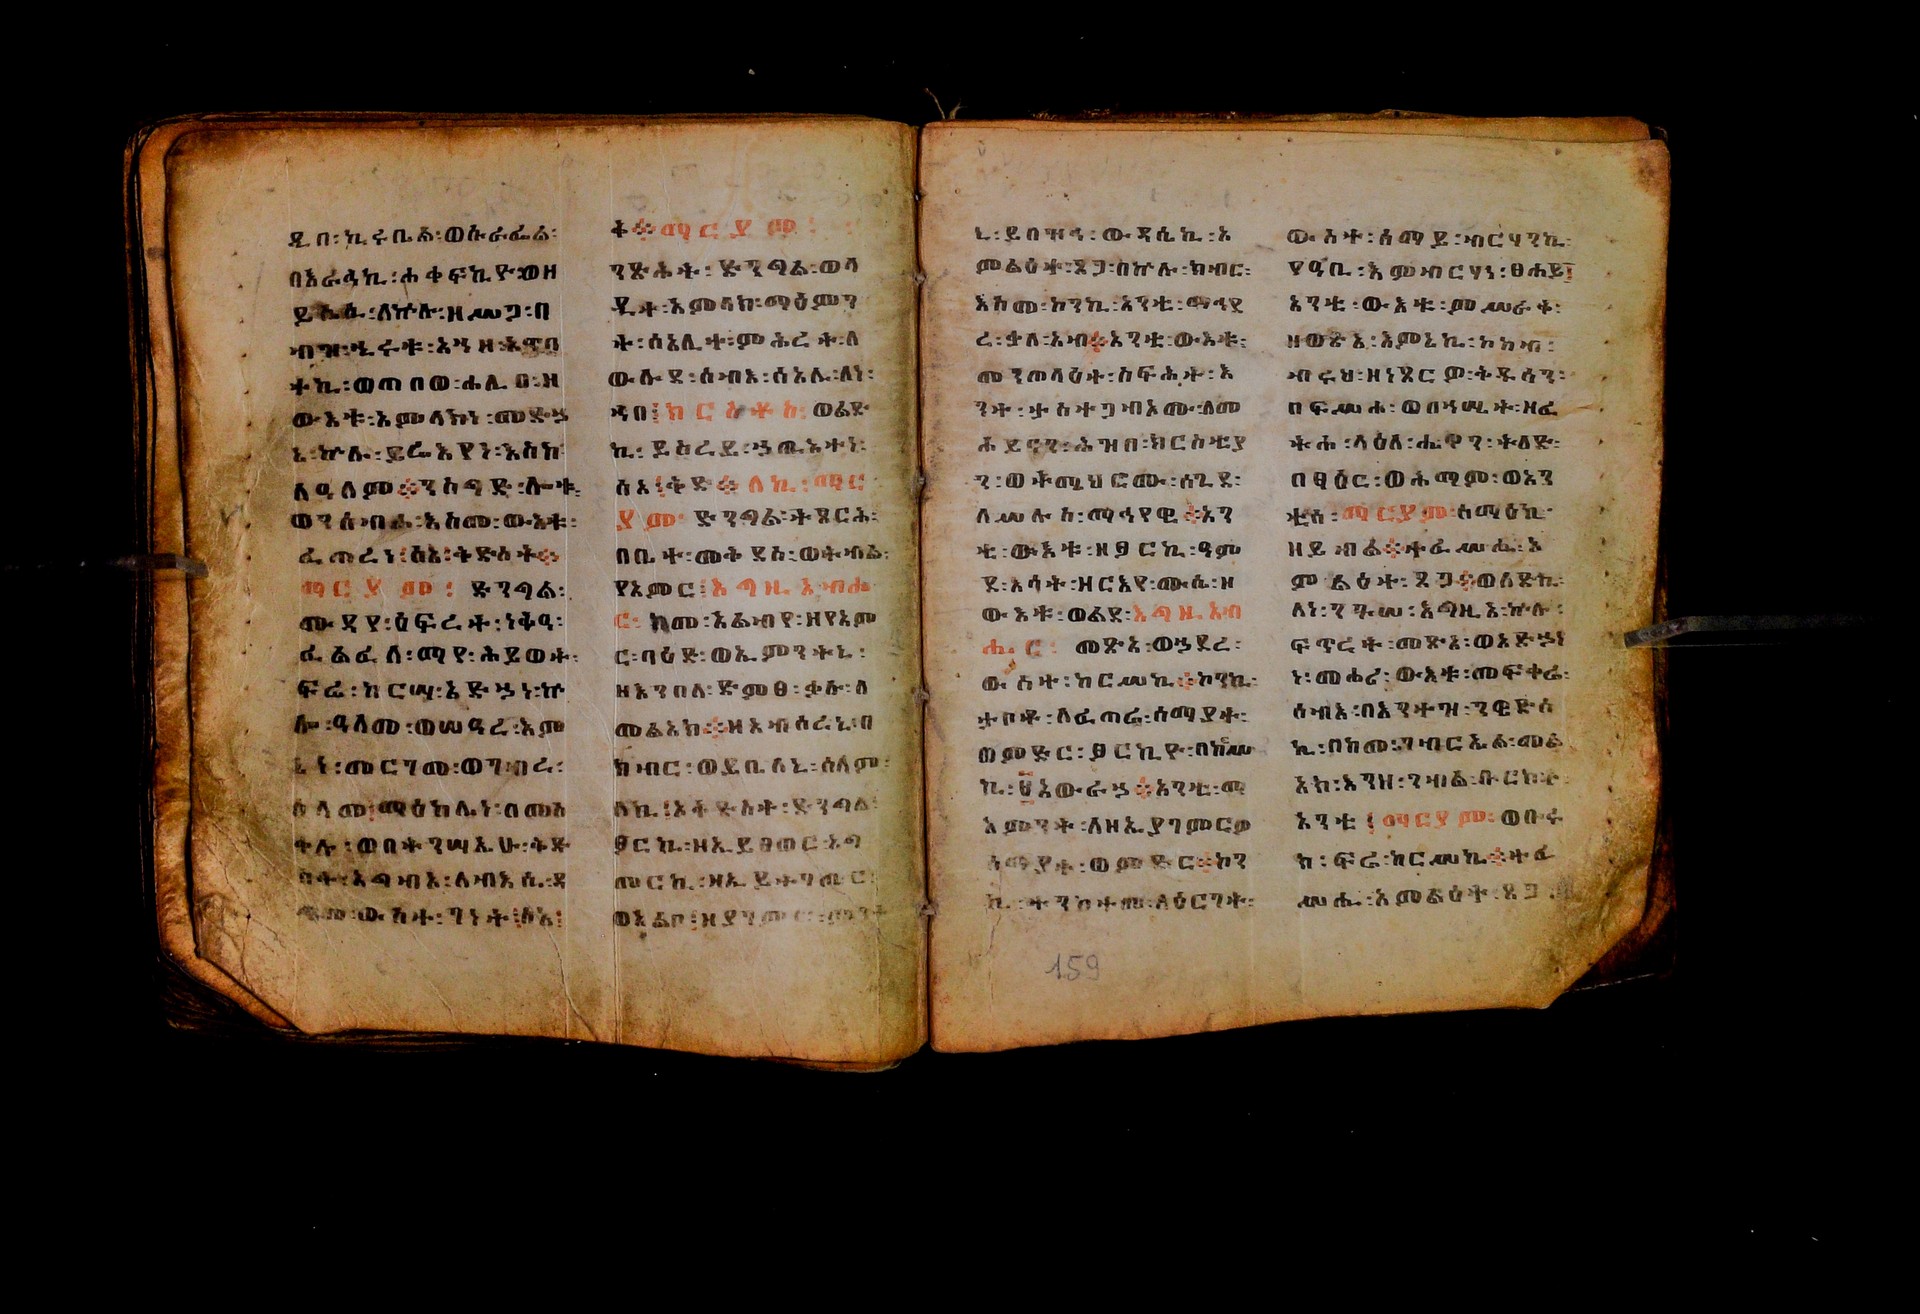 ዲበ፡ኪሩቤል፡ወሱራፌል፡
በእራኁኪ፡ሐቀፍኪዮ፡ወዘ
ይሴሲ፡ለኵሉ፡ዘሥጋ፡በ
ብዝኂሩቱ፡አኀዘ፡አጥበ
ተኪ፡ወጠበወ፡ሐሊበ፡ዘ
ውእቱ፡አምላክነ፡መድኃ
ኒ፡ኵሉ፡ይሬእየነ፡እስከ
ለዓለም፨ንስግድ፡ሎቱ፡
ወንሰብሖ፡እስመ፡ውእቱ፡
ፈጠረነ፡ሰአ፡ቅድስት፨
ማርያም፡ድንግል፡
ሙዳየ፡ዕፍረት፡ነቅዓ፡
ፈልፈለ፡ማየ፡ሕይወት፡
ፍሬ፡ከርሣ፡አድኃነ፡ኵ
ሎ፡ዓለመ፡ወሠዓረ፡እም
ኔነ፡መርገመ፡ወገብረ፡
ሰላመ፡ማዕከሌነ፡በመስ
ቀሉ፡ወበትንሣኤሁ፡ቅድ
ስት፡አግብአ፡ለብእሲ፡ዳ
ግመ፡ውስተ፡ገነት፡ሰአ፡
ቅ፨ማርያም፡
ንጽሕት፡ድንግል፡ወላ
ዲተ፡አምላክ፡ማዕምን
ት፡ሰአሊተ፡ምሕረት፡ለ
ውሉደ፡ሰብእ፡ሰአሊ፡ለነ፡
ኀበ፡ክርስቶስ፡ወልድ
ኪ፡ይስረይ፡ኃጢአተነ፡
ሰአ፡ቅድ፨ለኪ፡ማር
ያም፡ድንግል፡ትጸርሕ፡
በቤተ፡መቅደስ፡ወትብል፡
የአምር፡እግዚአብሔ
ር፡ከመ፡አልብየ፡ዘየአም
ር፡ባዕድ፡ወኢምንትኒ፡
ዘእንበለ፡ድምፀ፡ቃሉ፡ለ
መልአክ፨ዘአብሰረኒ፡በ
ክብር፡ወይቤለኒ፡ሰላም፡
ለኪ፡ኦቅድስት፡ድንግል፡
ፆርኪ፡ዘኢይፀወር፡አግ
መርኪ፡ዘኢይትገመር፡
ወአልቦ፡ዘያገምሮ፡ምንት
ኒ፡ይበዝኅ፡ውዳሴኪ፡እ
ምልዕተ፡ጸጋ፡በኵሉ፡ክብር፡
እስመ፡ኮንኪ፡አንቲ፡ማኅደ
ረ፡ቃለ፡አብ፨አንቲ፡ውእቱ፡
መንጦላዕት፡ስፍሕት፡እ
ንተ፡ታስተጋብኦሙ፡ለመ
ሐይምናን፡ሕዝበ፡ክርስቲያ
ን፡ወትሜህሮሙ፡ሰጊደ፡
ለሥሉስ፡ማኅየዊ፨አን
ቲ፡ውእቱ፡ዘፆርኪ፡ዓም
ደ፡እሳት፡ዘርእየ፡ሙሴ፡ዘ
ውእቱ፡ወልደ፡እግዚአብ
ሔር፡መጽአ፡ወኃደረ፡
ውስተ፡ከርሥኪ፨ኮንኪ፡
ታቦተ፡ለፈጣሬ፡ሰማያት፡
ወምድር፡ፆርኪዮ፡በከሥ
ኪ፡፱አውራኃ፨አንቲ፡ማ
እምንት፡ለዘኢያገምርዎ
ሰማያት፡ወምድር፨ኮን
ኪ፡ተንከተመ፡ለዕርገት፡
ውስተ፡ሰማይ፡ብርሃንኪ፡
የዓቢ፡እምብርሃነ፡ፀሐይ፤
አንቲ፡ውእቱ፡ምሥራቀ፡
ዘወጽአ፡እምኔኪ፡ኮከብ፡
ብሩህ፡ዘነጸርዎ፡ቅዱሳን፡
በፍሥሐ፡ወበኃሤት፡ዘፈ
ትሐ፡ላዕለ፡ሔዋን፡ትለድ፡
በፃዕር፡ወሐማም፡ወአን
ቲሰ፡ማርያም፡ሰማዕኪ፡
ዘይብል፨ተፈሥሒ፡እ
ምልዕተ፡ጸጋ፨ወለድኪ፡
ለነ፡ንጉሠ፡እግዚአ፡ኵሉ፡
ፍጥረት፡መጽአ፡ወአድኃነ
ነ፡መሐሪ፡ውእቱ፡መፍቀሬ፡
ሰብእ፡በእንተዝ፡ንዌድሰ
ኪ፡በከመ፡ገብርኤል፡መል
አክ፡እንዘ፡ንብል፡ቡርክት፡
አንቲ፡ማርያም፡ወቡሩ
ክ፡ፍሬ፡ከርሥኪ፨ተፈ
ሥሒ፡እምልዕተ፡ጸጋ፡
159